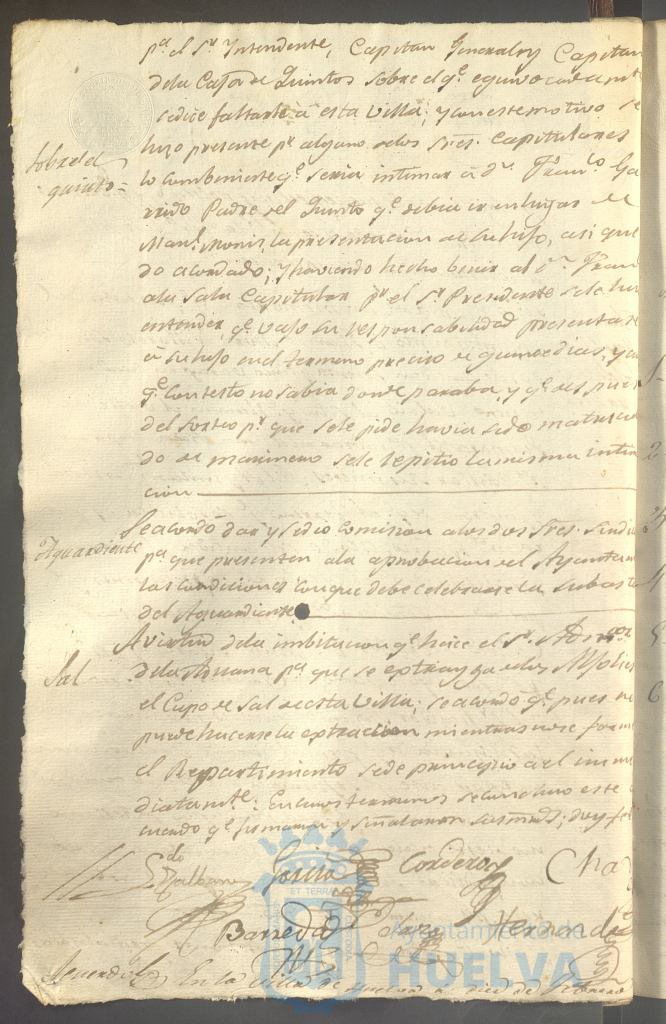 pª el Sr Intendente, Capitan General y Capitan
dela Caja de Quintos sobre el qe equivocadamte
se dice faltarle a esta Villa; y con este motivo se
hizo presente pr alguno delos Sres. Capitulares
Sobre el
quinto=
lo combeniente qe seria intimar a Dn Franco Ga
rrido Padre del Quinto qe debia ir en lugar de
Manl. Monis, la presentacion de su hijo, asi que
do acordado; y haviendo hecho benir al Dn Fran
ala Sala Capitular pr el Sr Presidente se le hizo
entender, qe vajo su responsabilidad presentase
a su hijo en el termino preciso de quince dias, y
qe contesto no sabia donde paraba, y qe despues
del sorteo pr que se le pide havia sido matricula
do de marinero se le repitio la misma intima
cion
Aguardiente
Se acordó dar y se dio comision a los dos Sres. Sindi
pª que presenten ala aprobacion del Ayuntam
las condiciones con que debe celebrarse la subasta
del Aguardiente
Sal
A virtud dela imbitacion qe hace el Sr. Admor
dela Aduana pª que se extrayga de los
el Cupo de Sal de esta Villa; se acordó qe pues no
puede hacerse la extraccion mientras no se forme
el Repartimiento se de principio a el inme
diatamte: En cuios terminos se concluyo este a
cuerdo qe firmaron y señalaron sus mds; doy fe
Cordero Cha
Barreda Hernand
En la Villa de Huelva a diez de Febrero
Ayuntamiento de
HUELVA